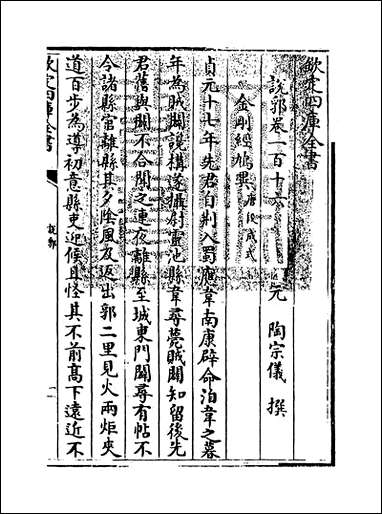 欽定四庫全書
說郛卷一百十六
元 陶宗儀 撰
金剛經鳩異 唐段成式
貞元十七年先君自荆入蜀應韋南康辟命洎韋之暮
年為賊闢讒構遂攝尉靈池縣韋尋薨賊闢知留後先
君舊與闢不合聞之連夜離縣至城東門闢尋有帖不
令諸縣官離縣其夕陰風及返出郭二里見火兩炬夾
道百步為導初意縣吏迎候且怪其不前高下遠近不
欽定四庫全書
說郛
一